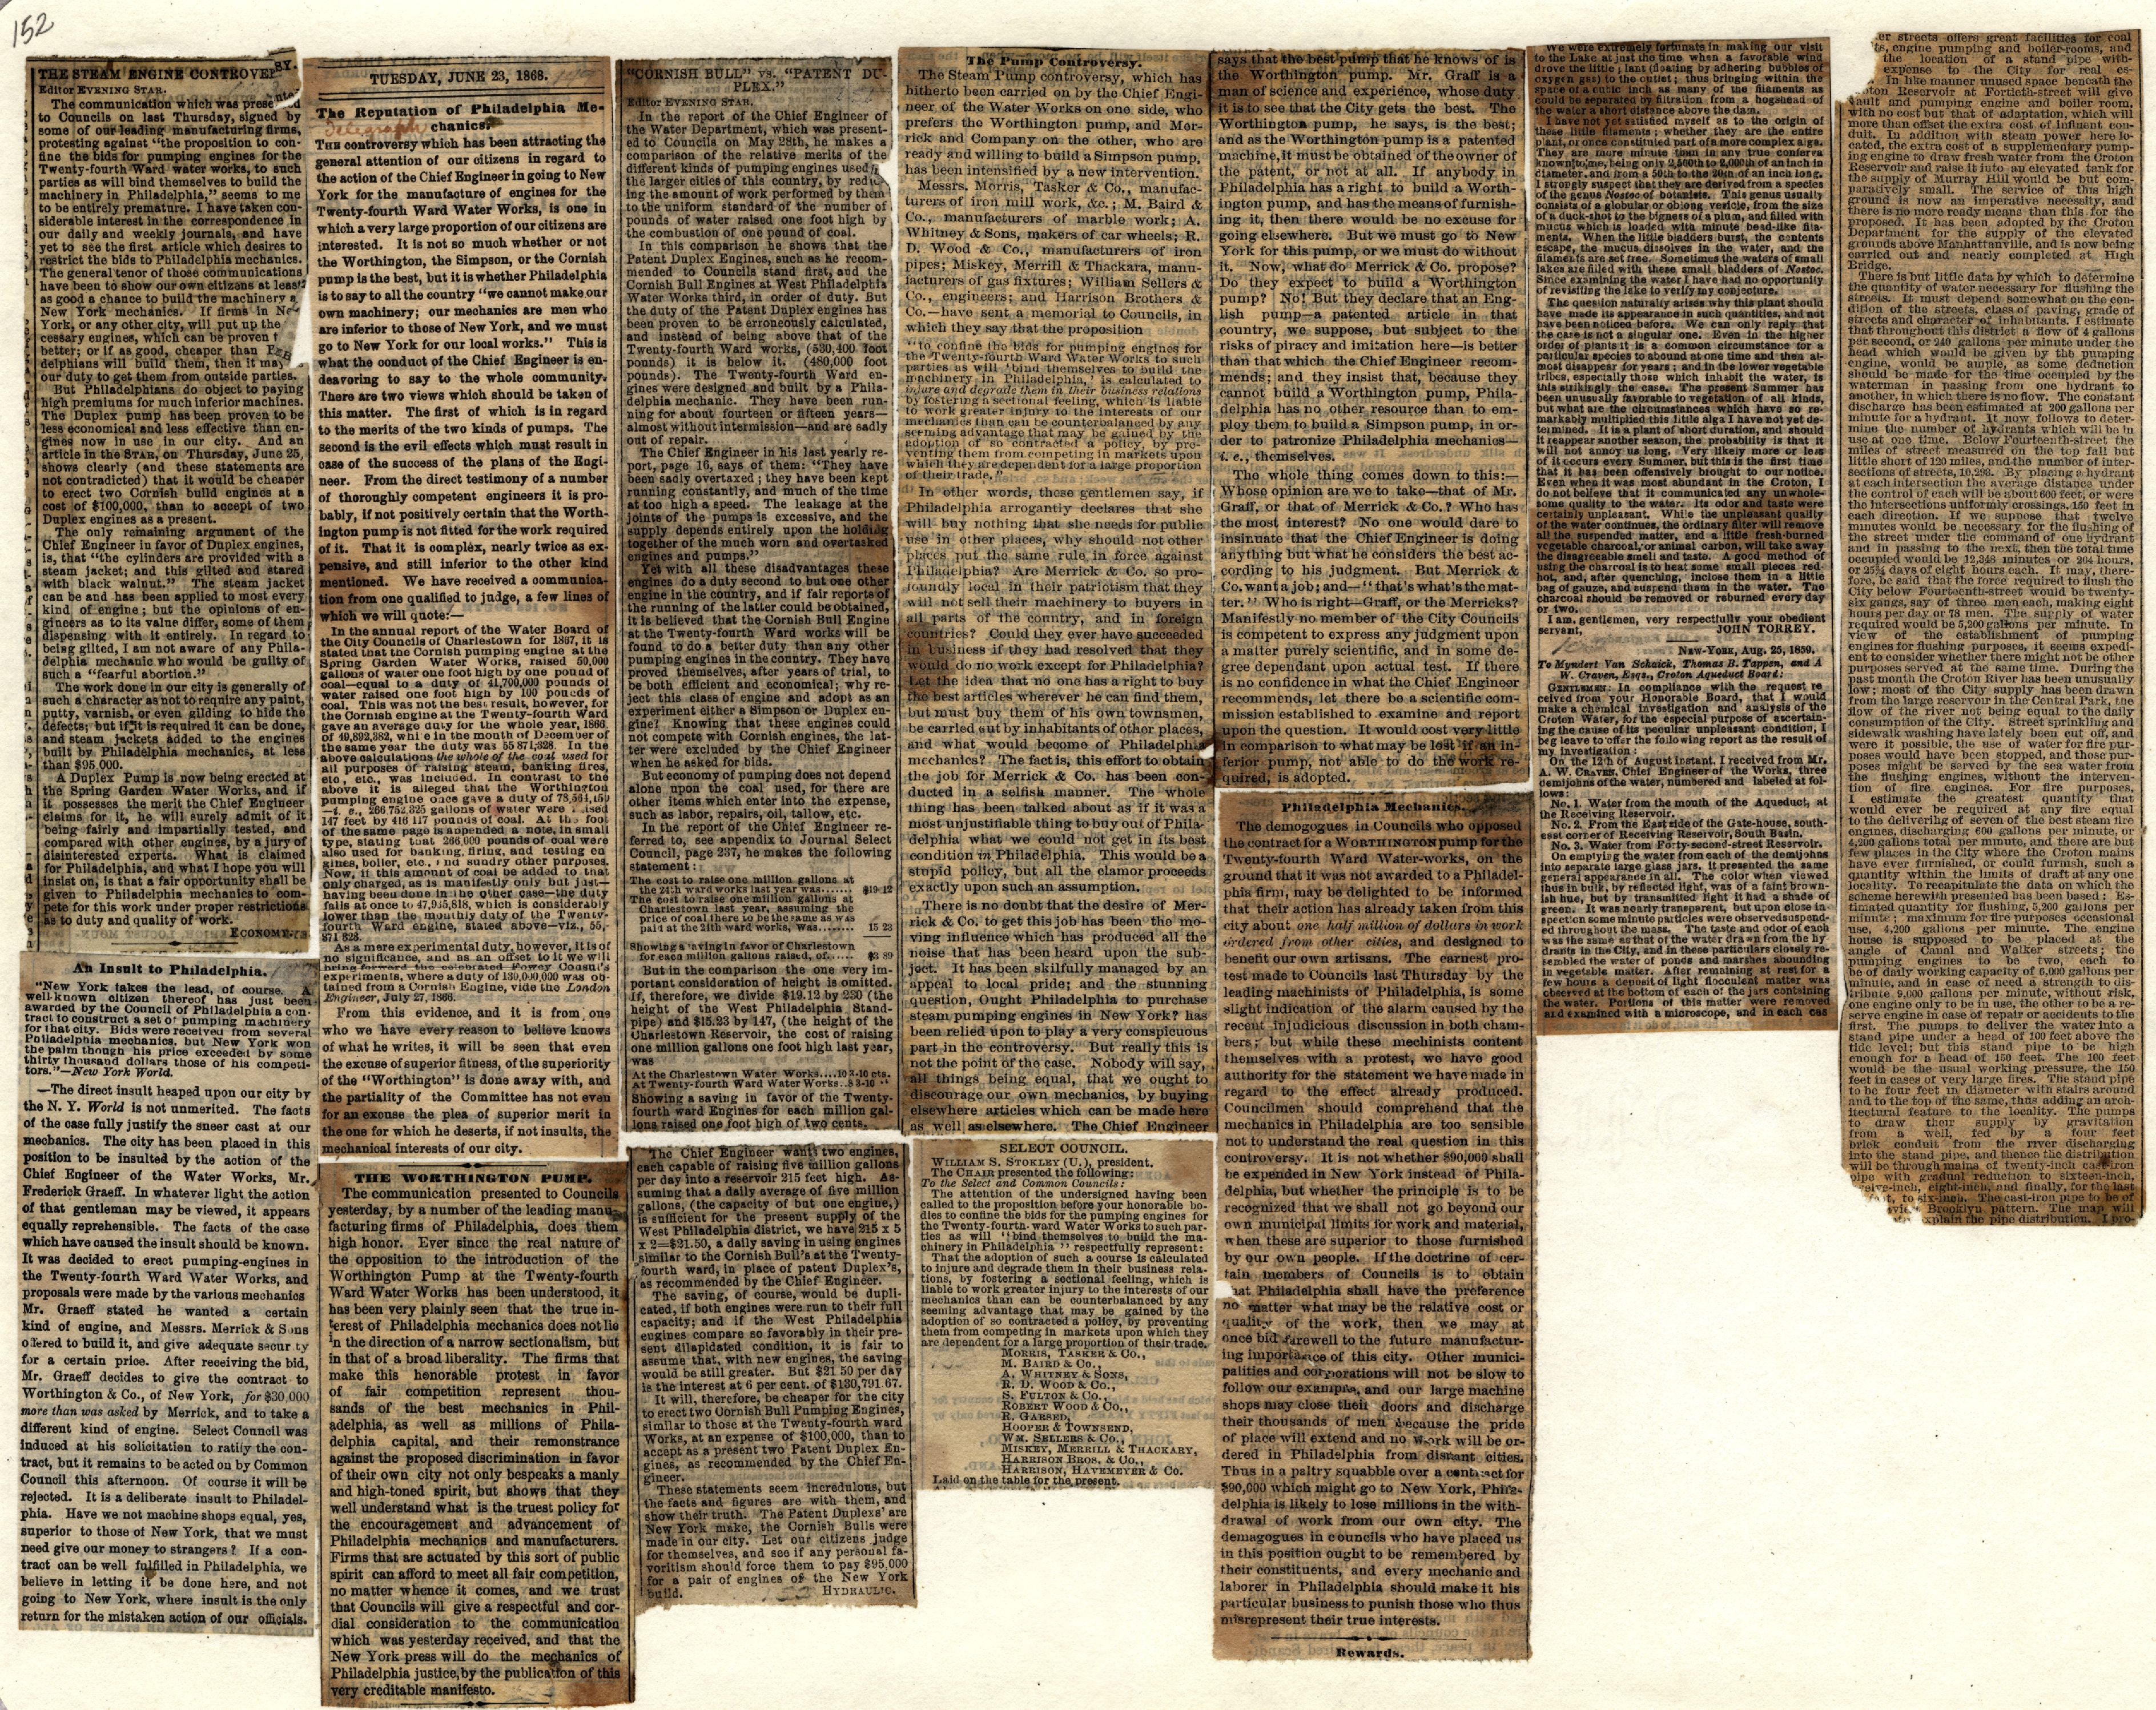 152
THE STEAM ENGINE CONTROVERSY.
Editor EVENING STAR.
The communication which was presented
to Councils on last Thursday, signed by
some of our leading manufacturing firms,
protesting against "the proposition to con-
fine the bids for pumping engines for the
Twenty-fourth Ward water works, to such
parties as will bind themselves to build the
machinery in Philadelphia," seems to me
to be entirely premature. I have taken con-
siderable interest in the correspondence in
our daily and weekly journals, and have
yet to see the first article which desires to
restrict the bids to Philadelphia mechanics.
The general tenor of those communications
have been to show our own citizens at least
as good a chance to build the machinery a
New York mechanics. If firms in Ne
York, or any other city, will put up the
cessary engines, which can be proven t
better; or if as good, cheaper than
delphians will build them, then it may
our duty to get them from outside parties.
But Philadelphians do object to paying
high premiums for much inferior machines.
The Duplex pump has been proven to be
less economical and less effective than en-
gines now in use in our city. And an
article in the STAR, on Thursday, June 25,
shows clearly (and these statements are
not contradicted) that it would be cheaper
to erect two Cornish build engines at a
cost of $100,000, than to accept of two
Duplex engines as a present.
The only remaining argument of the
Chief Engineer in favor of Duplex engines,
is, that "the cylinders are provided with a
steam jacket; and this gilted and stared
with black walnut." The steam jacket
can be and has been applied to most every
kind of engine; but the opinions of en-
gineers as to its value differ, some of them
dispensing with it entirely. In regard to
being gilted, I am not aware of any Phila-
delphia mechanic who would be guilty of
such a "fearful abortion."
The work done in our city is generally of
such a character as not to require any paint,
putty, varnish, or even gilding to hide the
defects; but if it is required it can be done,
and steam jackets added to the engines
built by Philadelphia mechanics, at less
than $95,000.
A Duplex Pump is now being erected at
the Spring Garden Water Works, and if
it possesses the merit the Chief Engineer
claims for it, he will surely admit of it
being fairly and impartially tested, and
compared with other engines, by a jury of
disinterested experts. What is claimed
for Philadelphia, and what I hope you will
insist on, is that a fair opportunity shall be
given to Philadelphia mechanics to com-
pete for this work under proper restrictions
as to duty and quality of work.
ECONOMY.
An Insult to Philadelphia.
"New York takes the lead, of course. A
well-known citizen thereof has just been
awarded by the Council of Philadelphia a con-
tract to construct a set of pumping machinery
for that city. Bids were received from several
Philadelphia mechanics, but New York won
the palm though his price exceeded by some
thirty thousand dollars those of his competi-
tors."—New York World.
—The direct insult heaped upon our city by
the N. Y. World is not unmerited. The facts
of the case fully justify the sneer cast at our
mechanics. The city has been placed in this
position to be insulted by the action of the
Chief Engineer of the Water Works, Mr.
Frederick Graeff. In whatever light the action
of that gentleman may be viewed, it appears
equally reprehensible. The facts of the case
which have caused the insult should be known.
It was decided to erect pumping-engines in
the Twenty-fourth Ward Water Works, and
proposals were made by the various mechanics
Mr. Graeff stated he wanted a certain
kind of engine, and Messrs. Merrick & Sons
offered to build it, and give adequate security
for a certain price. After receiving the bid,
Mr. Graeff decides to give the contract to
Worthington & Co., of New York, for $30,000
more than was asked by Merrick, and to take a
different kind of engine. Select Council was
induced at his solicitation to ratify the con-
tract, but it remains to be acted on by Common
Council this afternoon. Of course it will be
rejected. It is a deliberate insult to Philadel-
phia. Have we not machine shops equal, yes,
superior to those of New York, that we must
need give our money to strangers? If a con-
tract can be well fulfilled in Philadelphia, we
believe in letting it be done here, and not
going to New York, where insult is the only
return for the mistaken action of our officials.
TUESDAY, JUNE 23, 1868.
The Reputation of Philadelphia Me-
chanics.
Telegraph
THE controversy which has been attracting the
general attention of our citizens in regard to
the action of the Chief Engineer in going to New
York for the manufacture of engines for the
Twenty-fourth Ward Water Works, is one in
which a very large proportion of our citizens are
interested. It is not so much whether or not
the Worthington, the Simpson, or the Cornish
pump is the best, but it is whether Philadelphia
is to say to all the country "we cannot make our
own machinery; our mechanics are men who
are inferior to those of New York, and we must
go to New York for our local works." This is
what the conduct of the Chief Engineer is en-
deavoring to say to the whole community.
There are two views which should be taken of
this matter. The first of which is in regard
to the merits of the two kinds of pumps. The
second is the evil effects which must result in
case of the success of the plans of the Engi-
neer. From the direct testimony of a number
of thoroughly competent engineers it is pro-
bably, if not positively certain that the Worth-
ington pump is not fitted for the work required
of it. That it is complex, nearly twice as ex-
pensive, and still inferior to the other kind
mentioned. We have received a communica-
tion from one qualified to judge, a few lines of
which we will quote:—
In the annual report of the Water Board of
the City Councils of Charlestown for 1867, it is
stated that the Cornish pumping engine at the
Spring Garden Water Works, raised 50,000
gallons of water one foot high by one pound of
coal—equal to a duty of 41,700,000 pounds of
water raised one foot high by 100 pounds of
coal. This was not the best result, however, for
the Cornish engine at the Twenty-fourth Ward
gave an average duty for the whole year, 1866,
of 49,892,382, while in the month of December of
the same year the duty was 55 871,328. In the
above calculations the whole of the coal used for
all purposes of raising steam, banking fires,
etc., etc., was included. In contrast to the
above it is alleged that the Worthington
pumping engine once gave a duty of 78,561,159
—i. e., 266,752 325 gallons of water were raised
147 feet by 416 117 pounds of coal. At the foot
of the same page is appended a note, in small
type, stating that 266,000 pounds of coal were
also used for banking, firing, and testing en
gines, boiler, etc., and sundry other purposes.
Now, if this amount of coal be added to that
only charged, as is manifestly only but just—
having been done in the other case—the duty
falls at once to 47,935,818, which is considerably
lower than the monthly duty of the Twenty-
fourth Ward engine, stated above—viz., 55,-
871 828.
As a mere experimental duty, however, it is of
no significance, and as an offset to it we will
bring forward the celebrated Fowey Consul's
experiments, where a duty of 130,000,000 was ob-
tained from a Cornish Engine, vide the London
Engineer, July 27, 1866.
From this evidence, and it is from one
who we have every reason to believe knows
of what he writes, it will be seen that even
the excuse of superior fitness, of the superiority
of the "Worthington" is done away with, and
the partiality of the Committee has not even
for an excuse the plea of superior merit in
the one for which he deserts, if not insults, the
mechanical interests of our city.
THE WORTHINGTON PUMP.
The communication presented to Councils
yesterday, by a number of the leading manu-
facturing firms of Philadelphia, does them
high honor. Ever since the real nature of
the opposition to the introduction of the
Worthington Pump at the Twenty-fourth
Ward Water Works has been understood, it
has been very plainly seen that the true in-
terest of Philadelphia mechanics does not lie
in the direction of a narrow sectionalism, but
in that of a broad liberality. The firms that
make this honorable protest in favor
of fair competition represent thou-
sands of the best mechanics in Phil-
adelphia, as well as millions of Phila-
delphia capital, and their remonstrance
against the proposed discrimination in favor
of their own city not only bespeaks a manly
and high-toned spirit, but shows that they
well understand what is the truest policy for
the encouragement and advancement of
Philadelphia mechanics and manufacturers.
Firms that are actuated by this sort of public
spirit can afford to meet all fair competition,
no matter whence it comes, and we trust
that Councils will give a respectful and cor-
dial consideration to the communication
which was yesterday received, and that the
New York press will do the mechanics of
Philadelphia justice, by the publication of this
very creditable manifesto.
"CORNISH BULL" vs. "PATENT DU-
PLEX."
Editor EVENING STAR.
In the report of the Chief Engineer of
the Water Department, which was present-
ed to Councils on May 28th, he makes a
comparison of the relative merits of the
different kinds of pumping engines used
the larger cities of this country, by reduc-
ing the amount of work performed by them
to the uniform standard of the number of
pounds of water raised one foot high by
the combustion of one pound of coal.
In this comparison he shows that the
Patent Duplex Engines, such as he recom-
mended to Councils stand first, and the
Cornish Bull Engines at West Philadelphia
Water Works third, in order of duty. But
the duty of the Patent Duplex engines has
been proven to be erroneously calculated,
and instead of being above that of the
Twenty-fourth Ward works, (530,400 foot
pounds) it is below it. (480,000 foot
pounds). The Twenty-fourth Ward en-
gines were designed and built by a Phila-
delphia mechanic. They have been run-
ning for about fourteen or fifteen years—
almost without intermission—and are sadly
out of repair.
The Chief Engineer in his last yearly re-
port, page 16, says of them: "They have
been sadly overtaxed; they have been kept
running constantly, and much of the time
at too high a speed. The leakage at the
joints of the pumps is excessive, and the
supply depends entirely upon the holding
together of the much worn and overtasked
engines and pumps."
Yet with all these disadvantages these
engines do a duty second to but one other
engine in the country, and if fair reports of
the running of the latter could be obtained,
it is believed that the Cornish Bull Engine
at the Twenty-fourth Ward works will be
found to do a better duty than any other
pumping engines in the country. They have
proved themselves, after years of trial, to
be both efficient and economical; why re-
ject this class of engine and adopt as an
experiment either a Simpson or Duplex en-
gine? Knowing that these engines could
not compete with Cornish engines, the lat-
ter were excluded by the Chief Engineer
when he asked for bids.
But economy of pumping does not depend
alone upon the coal used, for there are
other items which enter into the expense,
such as labor, repairs, oil, tallow, etc.
In the report of the Chief Engineer re-
ferred to, see appendix to Journal Select
Council, page 237, he makes the following
statement:
The cost to raise one million gallons at
the 24th ward works last year was...... $19 12
The cost to raise one million gallons at
Charlestown last year, assuming the
price of coal there to be the same as was
paid at the 24th ward works, was........ 15 23
Showing a saving in favor of Charlestown
for each million gallons raised, of..... $3 89
But in the comparison the one very im-
portant consideration of height is omitted.
If, therefore, we divide $19.12 by 230 (the
height of the West Philadelphia Stand-
pipe) and $15.23 by 147, (the height of the
Charlestown Reservoir, the cost of raising
one million gallons one foot high last year,
was
At the Charlestown Water Works....10 3-10 cts.
At Twenty-fourth Ward Water Works..8 3-10 "
Showing a saving in favor of the Twenty-
fourth ward Engines for each million gal-
lons raised one foot high of two cents.
The Chief Engineer wants two engines,
each capable of raising five million gallons
per day into a reservoir 215 feet high. As-
suming that a daily average of five million
gallons, (the capacity of but one engine,)
is sufficient for the present supply of the
West Philadelphia district, we have 215 x 5
x 2=$21.50, a daily saving in using engines
similar to the Cornish Bull's at the Twenty-
fourth ward, in place of patent Duplex's,
as recommended by the Chief Engineer.
The saving, of course, would be dupli-
cated, if both engines were run to their full
capacity; and if the West Philadelphia
engines compare so favorably in their pre-
sent dilapidated condition, it is fair to
assume that, with new engines, the saving
would be still greater. But $21 50 per day
is the interest at 6 per cent. of $130,791 67.
It will, therefore, be cheaper for the city
to erect two Cornish Bull Pumping Engines,
similar to those at the Twenty-fourth ward
Works, at an expense of $100,000, than to
accept as a present two Patent Duplex En-
gines, as recommended by the Chief En-
gineer.
These statements seem incredulous, but
the facts and figures are with them, and
show their truth. The Patent Duplexs' are
New York make, the Cornish Bulls were
made in our city. Let our citizens judge
for themselves, and see if any personal fa-
voritism should force them to pay $95,000
for a pair of engines of the New York
build.
HYDRAULIC.
The Pump Controversy.
The Steam Pump controversy, which has
hitherto been carried on by the Chief Engi-
neer of the Water Works on one side, who
prefers the Worthington pump, and Mer-
rick and Company on the other, who are
ready and willing to build a Simpson pump,
has been intensified by a new intervention.
Messrs. Morris, Tasker & Co., manufac-
turers of iron mill work, &c.; M. Baird &
Co., manufacturers of marble work; A.
Whitney & Sons, makers of car wheels; R.
D. Wood & Co., manufacturers of iron
pipes; Miskey, Merrill & Thackara, manu-
facturers of gas fixtures; William Sellers &
Co., engineers; and Harrison Brothers &
Co.—have sent a memorial to Councils, in
which they say that the proposition
"to confine the bids for pumping engines for
the Twenty-fourth Ward Water Works to such
parties as will 'bind themselves to build the
machinery in Philadelphia,' is calculated to
injure and degrade them in their business relations
by fostering sectional feeling, which is liable
to work greater injury to the interests of our
mechanics than can be counterbalanced by any
seeming advantage that may be gained by the
adoption of so contracted a policy, by pre-
venting them from competing in markets upon
which they are dependent for a large proportion
of their trade."
In other words, these gentlemen say, if
Philadelphia arrogantly declares that she
will buy nothing that she needs for public
use in other places, why should not other
places put the same rule in force against
Philadelphia? Are Merrick & Co. so pro-
foundly local in their patriotism that they
will not sell their machinery to buyers in
all parts of the country, and in foreign
countries? Could they ever have succeeded
in business if they had resolved that they
would do no work except for Philadelphia?
Let the idea that no one has a right to buy
the best articles wherever he can find them,
but must buy them of his own townsmen,
be carried out by inhabitants of other places,
and what would become of Philadelphia
mechanics? The fact is, this effort to obtain
the job for Merrick & Co. has been con-
ducted in a selfish manner. The whole
thing has been talked about as if it was a
most unjustifiable thing to buy out of Phila-
delphia what we could not get in its best
condition in Philadelphia. This would be a
stupid policy, but all the clamor proceeds
exactly upon such an assumption.
There is no doubt that the desire of Mer-
rick & Co. to get this job has been the mo-
ving influence which has produced all the
noise that has been heard upon the sub-
ject. It has been skilfully managed by an
appeal to local pride; and the stunning
question, Ought Philadelphia to purchase
steam pumping engines in New York? has
been relied upon to play a very conspicuous
part in the controversy. But really this is
not the point of the case. Nobody will say,
all things being equal, that we ought to
discourage our own mechanics, by buying
elsewhere articles which can be made here
as well as elsewhere. The Chief Engineer
SELECT COUNCIL.
WILLIAM S. STOKLEY (U.), president.
The CHAIR presented the following:
To the Select and Common Councils:
The attention of the undersigned having been
called to the proposition before your honorable bo-
dies to confine the bids for the pumping engines for
the Twenty-fourth-ward Water Works to such par-
ties as will "bind themselves to build the ma-
chinery in Philadelphia" respectfully represent:
That the adoption of such a course is calculated
to injure and degrade them in their business rela-
tions, by fostering a sectional feeling, which is
liable to work greater injury to the interests of our
mechanics than can be counterbalanced by any
seeming advantage that may be gained by the
adoption of so contracted a policy, by preventing
them from competing in markets upon which they
are dependent for a large proportion of their trade.
MORRIS, TASKER & CO.,
M. BAIRD & CO.,
A. WHITNEY & SONS,
R. D. WOOD & CO.,
S. FULTON & CO.,
ROBERT WOOD & CO.,
R. GARSED,
HOOPER & TOWNSEND,
WM. SELLERS & CO.,
MISKEY, MERRILL & THACKARY,
HARRISON BROS. & CO.,
HARRISON, HAVEMEYER & CO.
Laid on the table for the present.
says that the best pump that he knows of is
the Worthington pump. Mr. Graff is a
man of science and experience, whose duty
it is to see that the City gets the best. The
Worthington pump, he says, is the best;
and as the Worthington pump is a patented
machine, it must be obtained of the owner of
the patent, or not at all. If anybody in
Philadelphia has a right to build a Worth-
ington pump, and has the means of furnish-
ing it, then there would be no excuse for
going elsewhere. But we must go to New
York for this pump, or we must do without
it. Now, what do Merrick & Co. propose?
Do they expect to build a Worthington
pump? No! But they declare that an Eng-
lish pump—a patented article in that
country, we suppose, but subject to the
risks of piracy and imitation here—is better
than that which the Chief Engineer recom-
mends; and they insist that, because they
cannot build a Worthington pump, Phila-
delphia has no other resource than to em-
ploy them to build a Simpson pump, in or-
der to patronize Philadelphia mechanics—
i. e., themselves.
The whole thing comes down to this:—
Whose opinion are we to take—that of Mr.
Graff, or that of Merrick & Co.? Who has
the most interest? No one would dare to
insinuate that the Chief Engineer is doing
anything but what he considers the best ac-
cording to his judgment. But Merrick &
Co. want a job; and—"that's what's the mat-
ter." Who is right—Graff, or the Merricks?
Manifestly no member of the City Councils
is competent to express any judgment upon
a matter purely scientific, and in some de-
gree dependant upon actual test. If there
is no confidence in what the Chief Engineer
recommends, let there be a scientific com-
mission established to examine and report
upon the question. It would cost very little
in comparison to what may be lost if an in-
ferior pump, not able to do the work re-
quired, is adopted.
Philadelphia Mechanics.
The demogogues in Councils who opposed
the contract for a WORTHINGTON pump for the
Twenty-fourth Ward Water-works, on the
ground that it was not awarded to a Philadel-
phia firm, may be delighted to be informed
that their action has already taken from this
city about one half million of dollars in work
ordered from other cities, and designed to
benefit our own artisans. The earnest pro-
test made to Councils last Thursday by the
leading machinists of Philadelphia, is some
slight indication of the alarm caused by the
recent injudicious discussion in both cham-
bers; but while these mechinists content
themselves with a protest, we have good
authority for the statement we have made in
regard to the effect already produced.
Councilmen should comprehend that the
mechanics in Philadelphia are too sensible
not to understand the real question in this
controversy. It is not whether $90,000 shall
be expended in New York instead of Phila-
delphia, but whether the principle is to be
recognized that we shall not go beyond our
own municipal limits for work and material,
when these are superior to those furnished
by our own people. If the doctrine of cer-
tain members of Councils is to obtain
hat Philadelphia shall have the preference
no matter what may be the relative cost or
quality of the work, then we may at
once bid farewell to the future manufactur-
ing importance of this city. Other munici-
palities and corporations will not be slow to
follow our example, and our large machine
shops may close their doors and discharge
their thousands of men because the pride
of place will extend and no work will be or-
dered in Philadelphia from distant cities.
Thus in a paltry squabble over a contract for
$90,000 which might go to New York, Phila-
delphia is likely to lose millions in the with-
drawal of work from our own city. The
demagogues in councils who have placed us
in this position ought to be remembered by
their constituents, and every mechanic and
laborer in Philadelphia should make it his
particular business to punish those who thus
misrepresent their true interests.
Rewards.
We were extremely fortunate in making our visit
to the Lake at just the time when a favorable wind
drove the little plant (floating by adhering bubbles of
oxygen gas) to the outlet; thus bringing within the
space of a cubic inch as many of the filaments as
could be separated by filtration from a hogshead of
the water a short distance above the dam.
I have not yet satisfied myself as to the origin of
these little filaments; whether they are the entire
plant, or once constituted part of a more complex alga.
They are more minute than in any true conferva
known to me, being only 2,500th to 2,000th of an inch in
diameter, and from a 50th to the 20th of an inch long.
I strongly suspect that they are derived from a species
of the genus Nostoc of botanists. This genus usually
consists of a globular or oblong vesicle, from the size
of a duck-shot to the bigness of a plum, and filled with
mucus which is loaded with minute bead-like fila-
ments. When the little bladders burst, the contents
escape, the mucus dissolves in the water, and the
filaments are set free. Sometimes the waters of small
lakes are filled with these small bladders of Nostoc.
Since examining the water I have had no opportunity
of revisiting the lake to verify my conjecture.
The question naturally arises why this plant should
have made its appearance in such quantities, and not
have been noticed before. We can only reply that
the case is not a singular one. Even in the higher
order of plants it is a common circumstance for a
particular species to abound at one time and then al-
most disappear for years; and in the lower vegetable
tribes, especially those which inhabit the water, is
this strikingly the case. The present Summer has
been unusually favorable to vegetation of all kinds,
but what are the circumstances which have so re-
markably multiplied this little alga I have not yet de-
termined. It is a plant of short duration, and should
it reappear another season, the probability is that it
will not annoy us long. Very likely more or less
of it occurs every Summer, but this is the first time
that it has been offensively brought to our notice.
Even when it was most abundant in the Croton, I
do not believe that it communicated any unwhole-
some quality to the water. Its odor and taste were
certainly unpleasant. While the unpleasant quality
of the water continues, the ordinary filter will remove
all the suspended matter, and a little fresh-burned
vegetable charcoal, or animal carbon, will take away
the disagreeable smell and taste. A good method of
using the charcoal is to heat some small pieces red-
hot, and, after quenching, inclose them in a little
bag of gauze, and suspend them in the water. The
charcoal should be removed or reburned every day
or two.
I am, gentlemen, very respectfully your obedient
servant, JOHN TORREY.
NEW-YORK, Aug. 25, 1859.
To Myndert Van Schaick, Thomas B. Tappen, and A
W. Craven, Esqs., Croton Aqueduct Board:
GENTLEMEN: In compliance with the request re
ceived from your Honorable Board, that I would
make a chemical investigation and analysis of the
Croton Water, for the especial purpose of ascertain-
ing the cause of its peculiar unpleasant condition, I
beg leave to offer the following report as the result of
my investigation:
On the 12th of August instant, I received from Mr.
A. W. CRAVEN, Chief Engineer of the Works, three
demijohns of the water, numbered and labeled as fol-
lows:
No. 1. Water from the mouth of the Aqueduct, at
the Receiving Reservoir.
No. 2. From the East side of the Gate-house, south-
east corner of Receiving Reservoir, South Basin.
No. 3. Water from Forty-second-street Reservoir.
On emptying the water from each of the demijohns
into separate large glass jars, it presented the same
general appearance in all. The color when viewed
thus in bulk, by reflected light, was of a faint brown-
ish hue, but by transmitted light it had a shade of
green. It was nearly transparent, but upon close in-
spection some minute particles were observed suspend-
ed throughout the mass. The taste and odor of each
was the same as that of the water drawn from the hy-
drants in the City, and in these particulars closely re-
sembled the water of ponds and marshes abounding
in vegetable matter. After remaining at rest for a
few hours a deposit of light flocculent matter was
observed at the bottom of each of the jars containing
the water. Portions of this matter were removed
and examined with a microscope, and in each cas
er streets offers great facilities for coal
ts, engine pumping and boiler-rooms, and
the location of a stand pipe with-
expense to the City for real es-
In like manner unused space beneath the
oton Reservoir at Fortieth-street will give
vault and pumping engine and boiler room,
with no cost but that of adaptation, which will
more than offset the extra cost of influent con-
duit. In addition with steam power here lo-
cated, the extra cost of a supplementary pump-
ing engine to draw fresh water from the Croton
Reservoir and raise it into an elevated tank for
the supply of Murray Hill would be but com-
paratively small. The service of this high
ground is now an imperative necessity, and
there is no more ready means than this for the
proposed. It has been adopted by the Croton
Department for the supply of the elevated
grounds above Manhattanville, and is now being
carried out and nearly completed at High
Bridge.
There is but little data by which to determine
the quantity of water necessary for flushing the
streets. It must depend somewhat on the con-
dition of the streets, class of paving, grade of
streets and character of inhabitants. I estimate
that throughout this district a flow of 4 gallons
per second, or 240 gallons per minute under the
head which would be given by the pumping
engine, would be ample, as some deduction
should be made for the time occupied by the
waterman in passing from one hydrant to
another, in which there is no flow. The constant
discharge has been estimated at 200 gallons per
minute for a hydrant. It now follows to deter-
mine the number of hydrants which will be in
use at one time. Below Fourteenth-street the
miles of street measured on the top fall but
little short of 120 miles, and the number of inter-
sections of streets, 10,298. By placing a hydrant
at each intersection the average distance under
the control of each will be about 600 feet, or were
the intersections uniformly crossings, 150 feet in
each direction. If we suppose that twelve
minutes would be necessary for the flushing of
the street under the command of one hydrant
and in passing to the next, then the total time
occupied would be 12,348 minutes or 204 hours,
or 25¾ days of eight hours each. It may, there-
fore, be said that the force required to flush the
City below Fourteenth-street would be twenty-
six gangs, say of three men each, making eight
hours per day or 78 men. The supply of water
required would be 5,200 gallons per minute. In
view of the establishment of pumping
engines for flushing purposes, it seems expedi-
ent to consider whether there might not be other
purposes served at the same time. During the
past month the Croton River has been unusually
low; most of the City supply has been drawn
from the large reservoir in the Central Park, the
flow of the river not being equal to the daily
consumption of the City. Street sprinkling and
sidewalk washing have lately been cut off, and
were it possible, the use of water for fire pur-
poses would have been stopped, and those pur-
poses might be served by the sea water from
the flushing engines, without the interven-
tion of fire engines. For fire purposes,
I estimate the greatest quantity that
would ever be required at any fire equal
to the delivering of seven of the best steam fire
engines, discharging 600 gallons per minute, or
4,200 gallons total per minute, and there are but
few places in the City where the Croton mains
have ever furnished, or could furnish, such a
quantity within the limits of draft at any one
locality. To recapitulate the data on which the
scheme herewith presented has been based: Es-
timated quantity for flushing, 5,200 gallons per
minute; maximum for fire purposes occasional
use, 4,200 gallons per minute. The engine
house is supposed to be placed at the
angle of Canal and Walker streets; the
pumping engines to be two, each to
be of daily working capacity of 6,000 gallons per
minute, and in case of need a strength to dis-
tribute 9,000 gallons per minute, without risk,
one engine only to be in use, the other to be a re-
serve engine in case of repair or accidents to the
first. The pumps to deliver the water into a
stand pipe under a head of 100 feet above the
tide level; but this stand pipe to be high
enough for a head of 150 feet. The 100 feet
would be the usual working pressure, the 150
feet in cases of very large fires. The stand pipe
to be four feet in diameter with stairs around
and to the top of the same, thus adding an arch-
itectural feature to the locality. The pumps
to draw their supply by gravitation
from a well, fed by a four feet
brick conduit from the river discharging
into the stand pipe, and thence the distribution
will be through mains of twenty-inch cast-iron
pipe with gradual reduction to sixteen-inch,
twelve-inch, eight-inch, and finally, for the last
t, to six-inch. The cast-iron pipe to be of
Brooklyn pattern. The map will
xplain the pipe distribution. I pro-